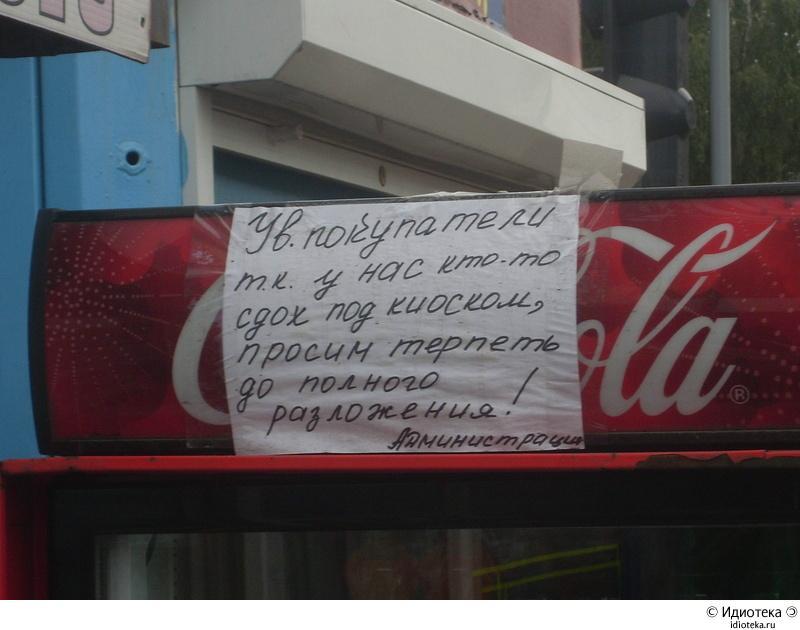 Ув. покупатели
т.к. у нас кто-то
сдох под киоском,
просим терпеть
до полного
разложения!
Администрация
Cola
®
© Идиотека
idioteka.ru